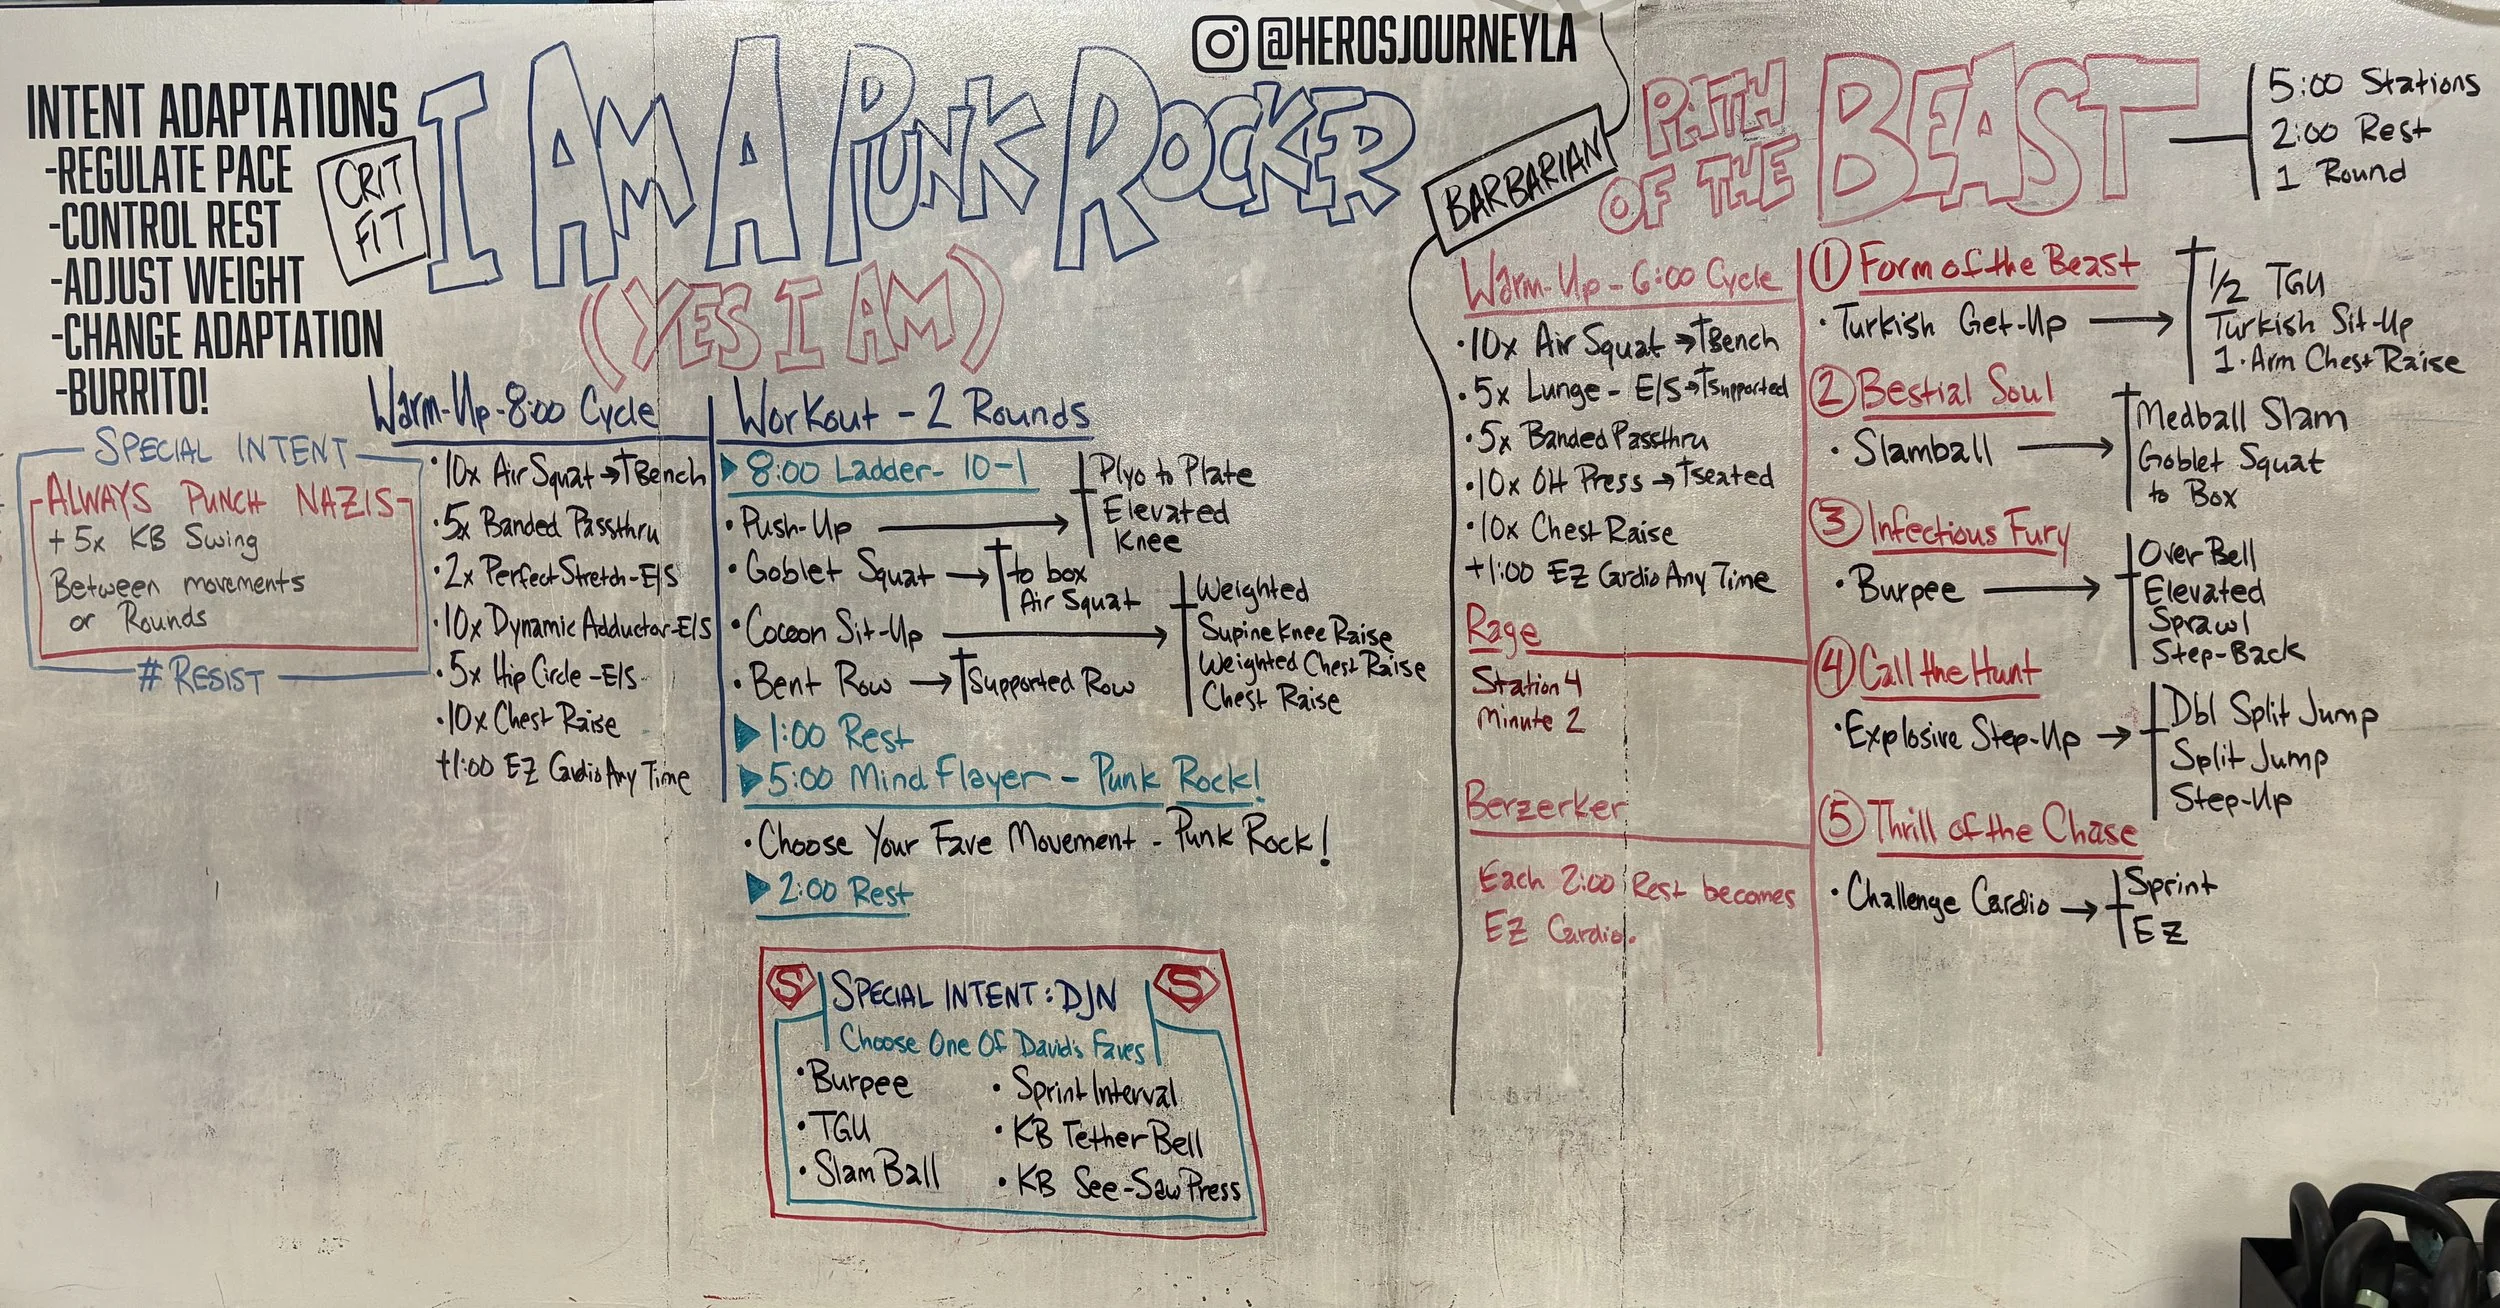 @HEROSJOURNEYLA
INTENT ADAPTATIONS
-REGULATE PACE
-CONTROL REST
-ADJUST WEIGHT
-CHANGE ADAPTATION
-BURRITO!
SPECIAL INTENT
ALWAYS PUNCH NAZIS
+5x KB Swing
Between movements
or Rounds
#RESIST
CRIT
FIT
I AM A PUNK ROCKER
(YES I AM)
Warm-Up-8:00 Cycle
•10x Air Squat →†Bench
•5x Banded Passthru
•2x Perfect Stretch-E/S
•10x Dynamic Adductor-E/S
•5x Hip Circle-E/S
•10x Chest Raise
+1:00 EZ Cardio Any Time
Workout - 2 Rounds
▶ 8:00 Ladder- 10-1
•Push-Up →
Plyo to Plate
Elevated
Knee
•Goblet Squat →
to box
Air Squat
•Cocoon Sit-Up →
Weighted
Supine Knee Raise
Weighted Chest Raise
Chest Raise
•Bent Row → †Supported Row
▶1:00 Rest
▶5:00 Mind Flayer - Punk Rock!
•Choose Your Fave Movement - Punk Rock!
▶2:00 Rest
S SPECIAL INTENT: DJN S
Choose One Of David's Faves
•Burpee
•TGU
•Slam Ball
•Sprint Interval
•KB Tether Bell
•KB See-Saw Press
BARBARIAN
PATH
OF THE
BEAST
5:00 Stations
2:00 Rest
1 Round
Warm-Up-6:00 Cycle
•10x Air Squat →†Bench
•5x Lunge - E/S→†Supported
•5x Banded Passthru
•10x OH Press →†seated
•10x Chest Raise
+1:00 EZ Cardio Any Time
Rage
Station 4
Minute 2
Berzerker
Each 2:00 Rest becomes
EZ Cardio.
① Form of the Beast
•Turkish Get-Up →
1/2 TGU
Turkish Sit-Up
1-Arm Chest Raise
② Bestial Soul
•Slamball →
Medball Slam
Goblet Squat
to Box
③ Infectious Fury
•Burpee →
Over Bell
Elevated
Sprawl
Step-Back
④ Call the Hunt
•Explosive Step-Up →
Dbl Split Jump
Split Jump
Step-Up
⑤ Thrill of the Chase
•Challenge Cardio →
Sprint
EZ